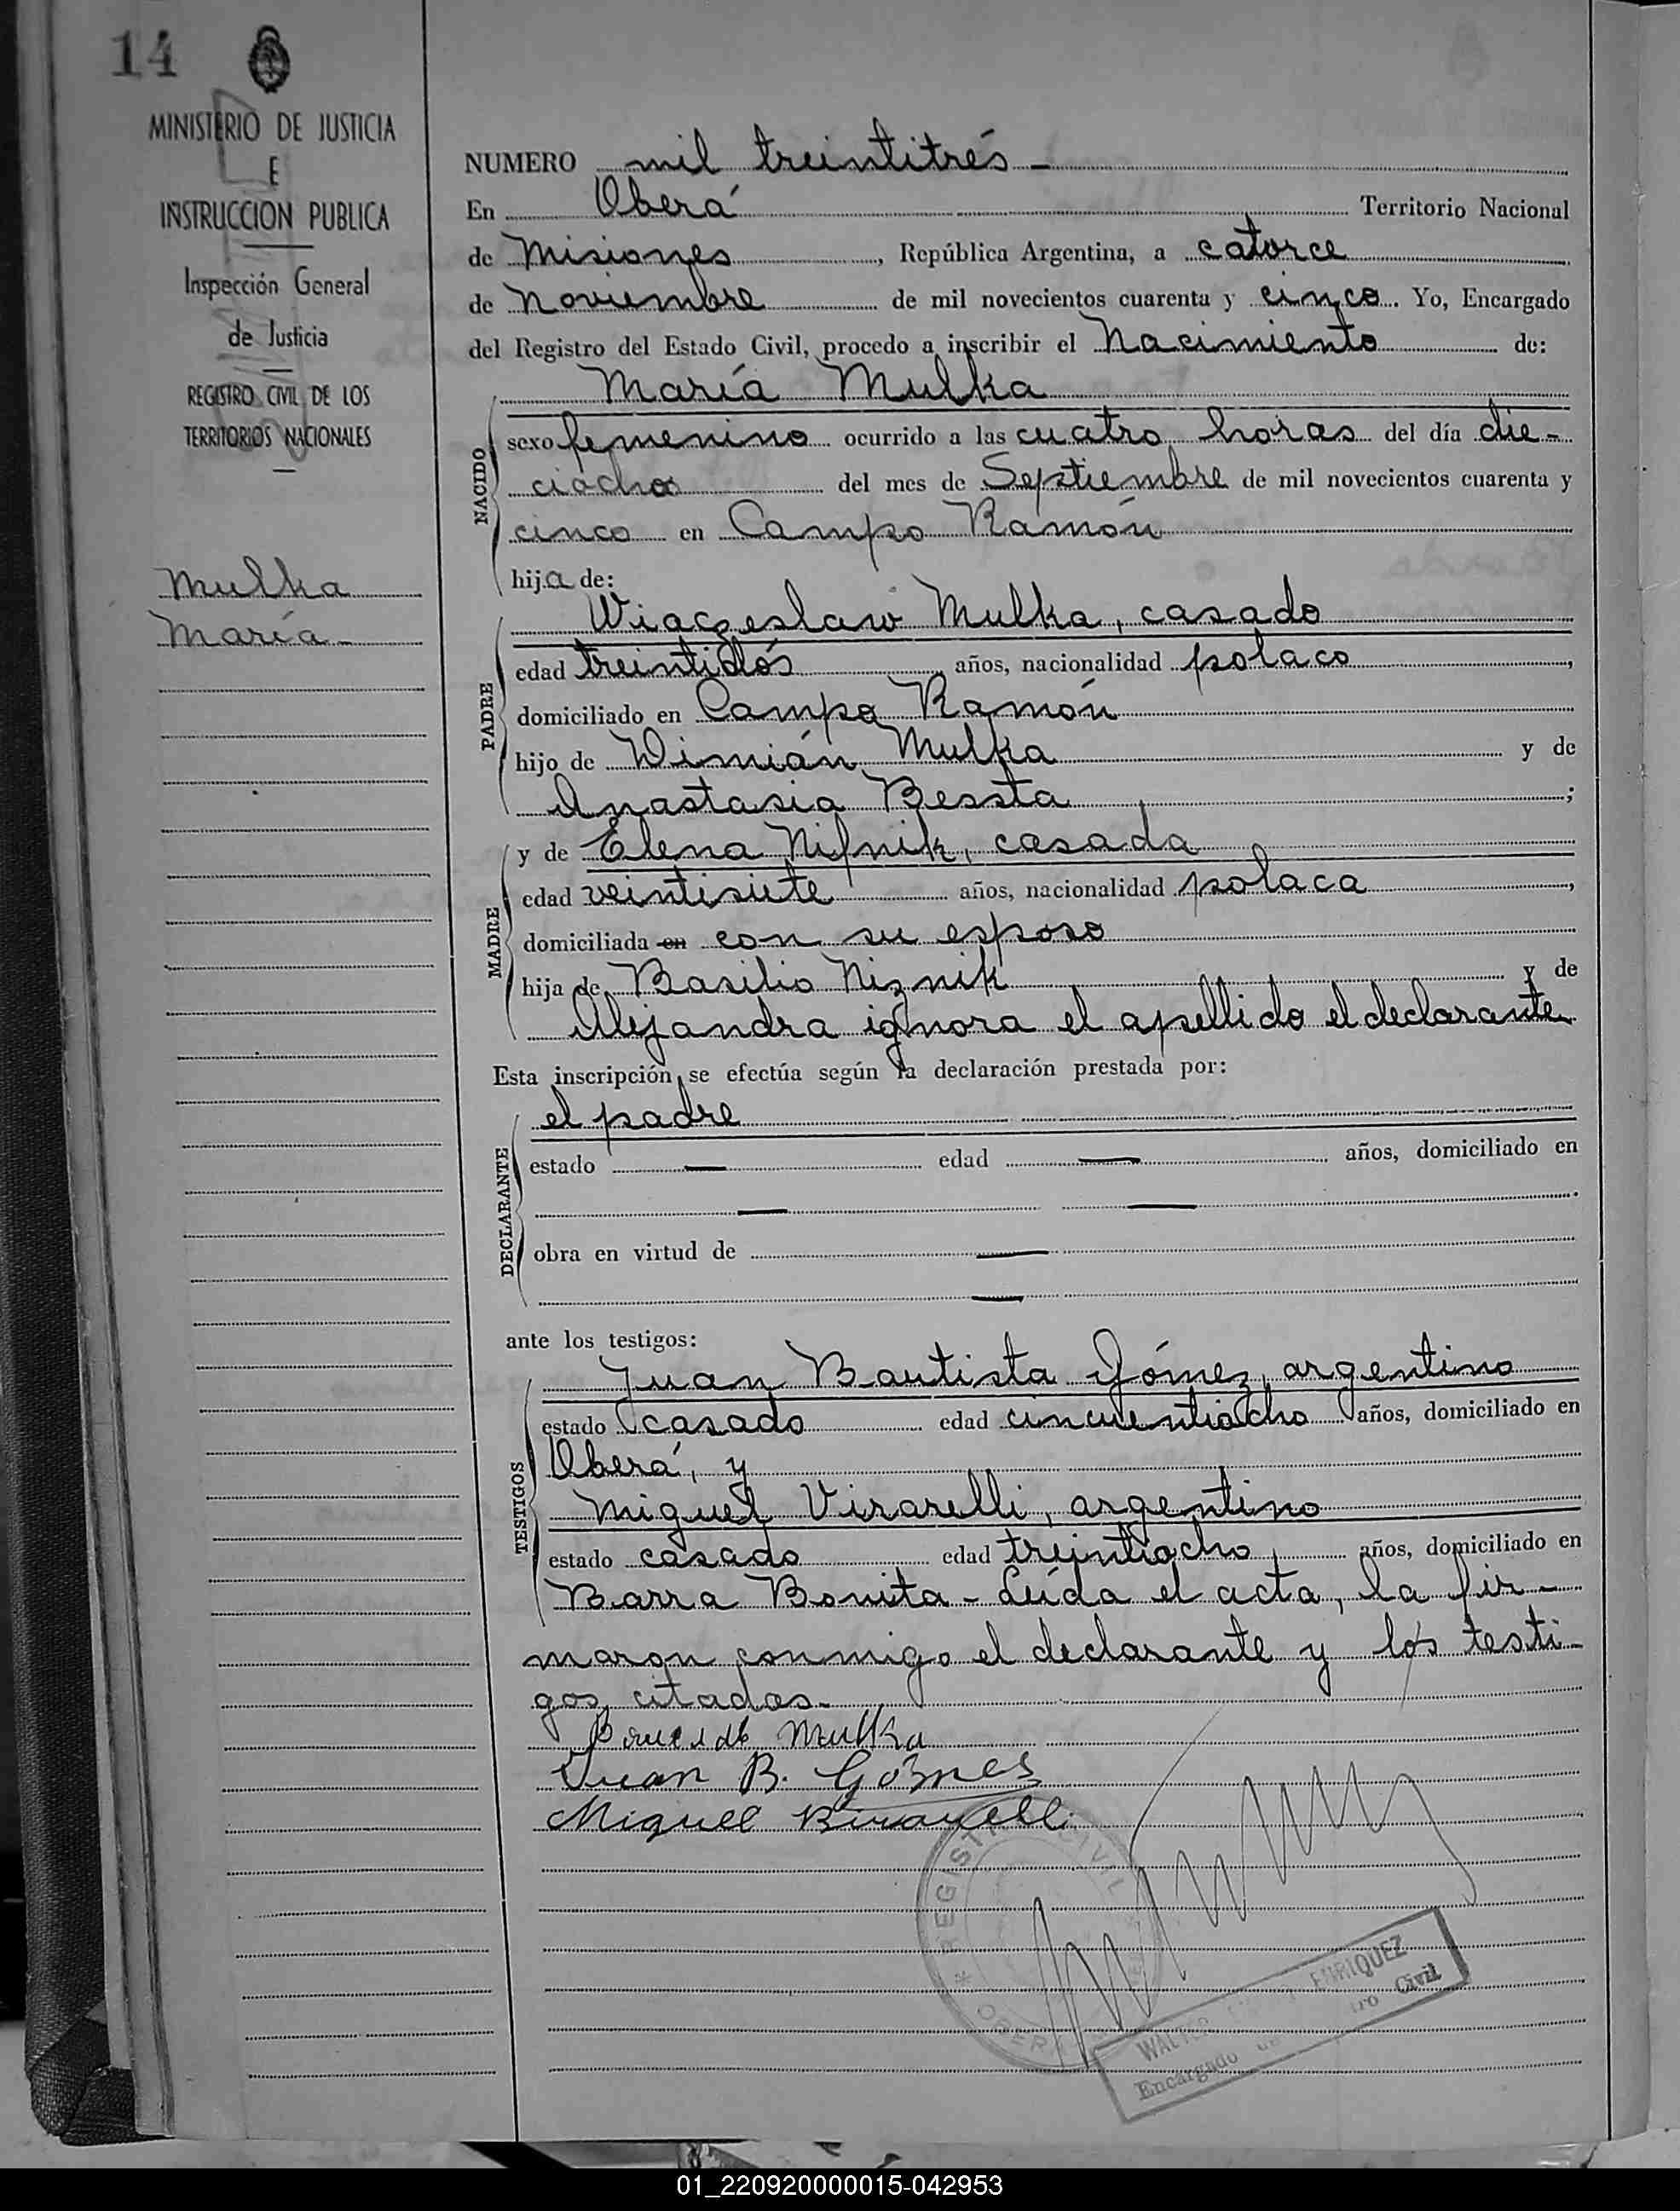 14
MINISTERIO DE JUSTICIA
E
INSTRUCCION PUBLICA
Inspección General
de Justicia
REGISTRO CIVIL DE LOS
TERRITORIOS NACIONALES
Mulka
María
NUMERO mil treintitrés
En Oberá Territorio Nacional
de Misiones, República Argentina, a catorce
de noviembre de mil novecientos cuarenta y cinco. Yo, Encargado
del Registro del Estado Civil, procedo a inscribir el Nacimiento de:
María Mulka
NACIDO
sexo femenino ocurrido a las cuatro horas del día die-
ciocho del mes de Septiembre de mil novecientos cuarenta y
cinco en Campo Ramón
hija de:
Wiaczeslaw Mulka, casado
PADRE
edad treintidós años, nacionalidad polaco,
domiciliado en Campo Ramón
hijo de Wimián Mulka y de
Anastasia Bessta;
y de Elena Nifnik, casada
MADRE
edad veintisiete años, nacionalidad polaca,
domiciliada en con su esposo
hija de Basilio Niznik y de
Alejandra ignora el apellido el declarante
Esta inscripción se efectúa según la declaración prestada por:
el padre
DECLARANTE
estado — edad — años, domiciliado en
— —
obra en virtud de —
—
ante los testigos:
Juan Bautista Gómez, argentino
TESTIGOS
estado casado edad cincuentiocho años, domiciliado en
Oberá, y
Miguel Virarelli, argentino
estado casado edad treintiocho años, domiciliado en
Barra Bonita - Leída el acta, la fir-
maron conmigo el declarante y los testi-
gos citados.
Mulka
Juan B. Gómes
Miguel Birarelli
REGISTRO CIVIL
* OBERA
WALTER ENRIQUEZ
Encargado Civil
01_220920000015-042953